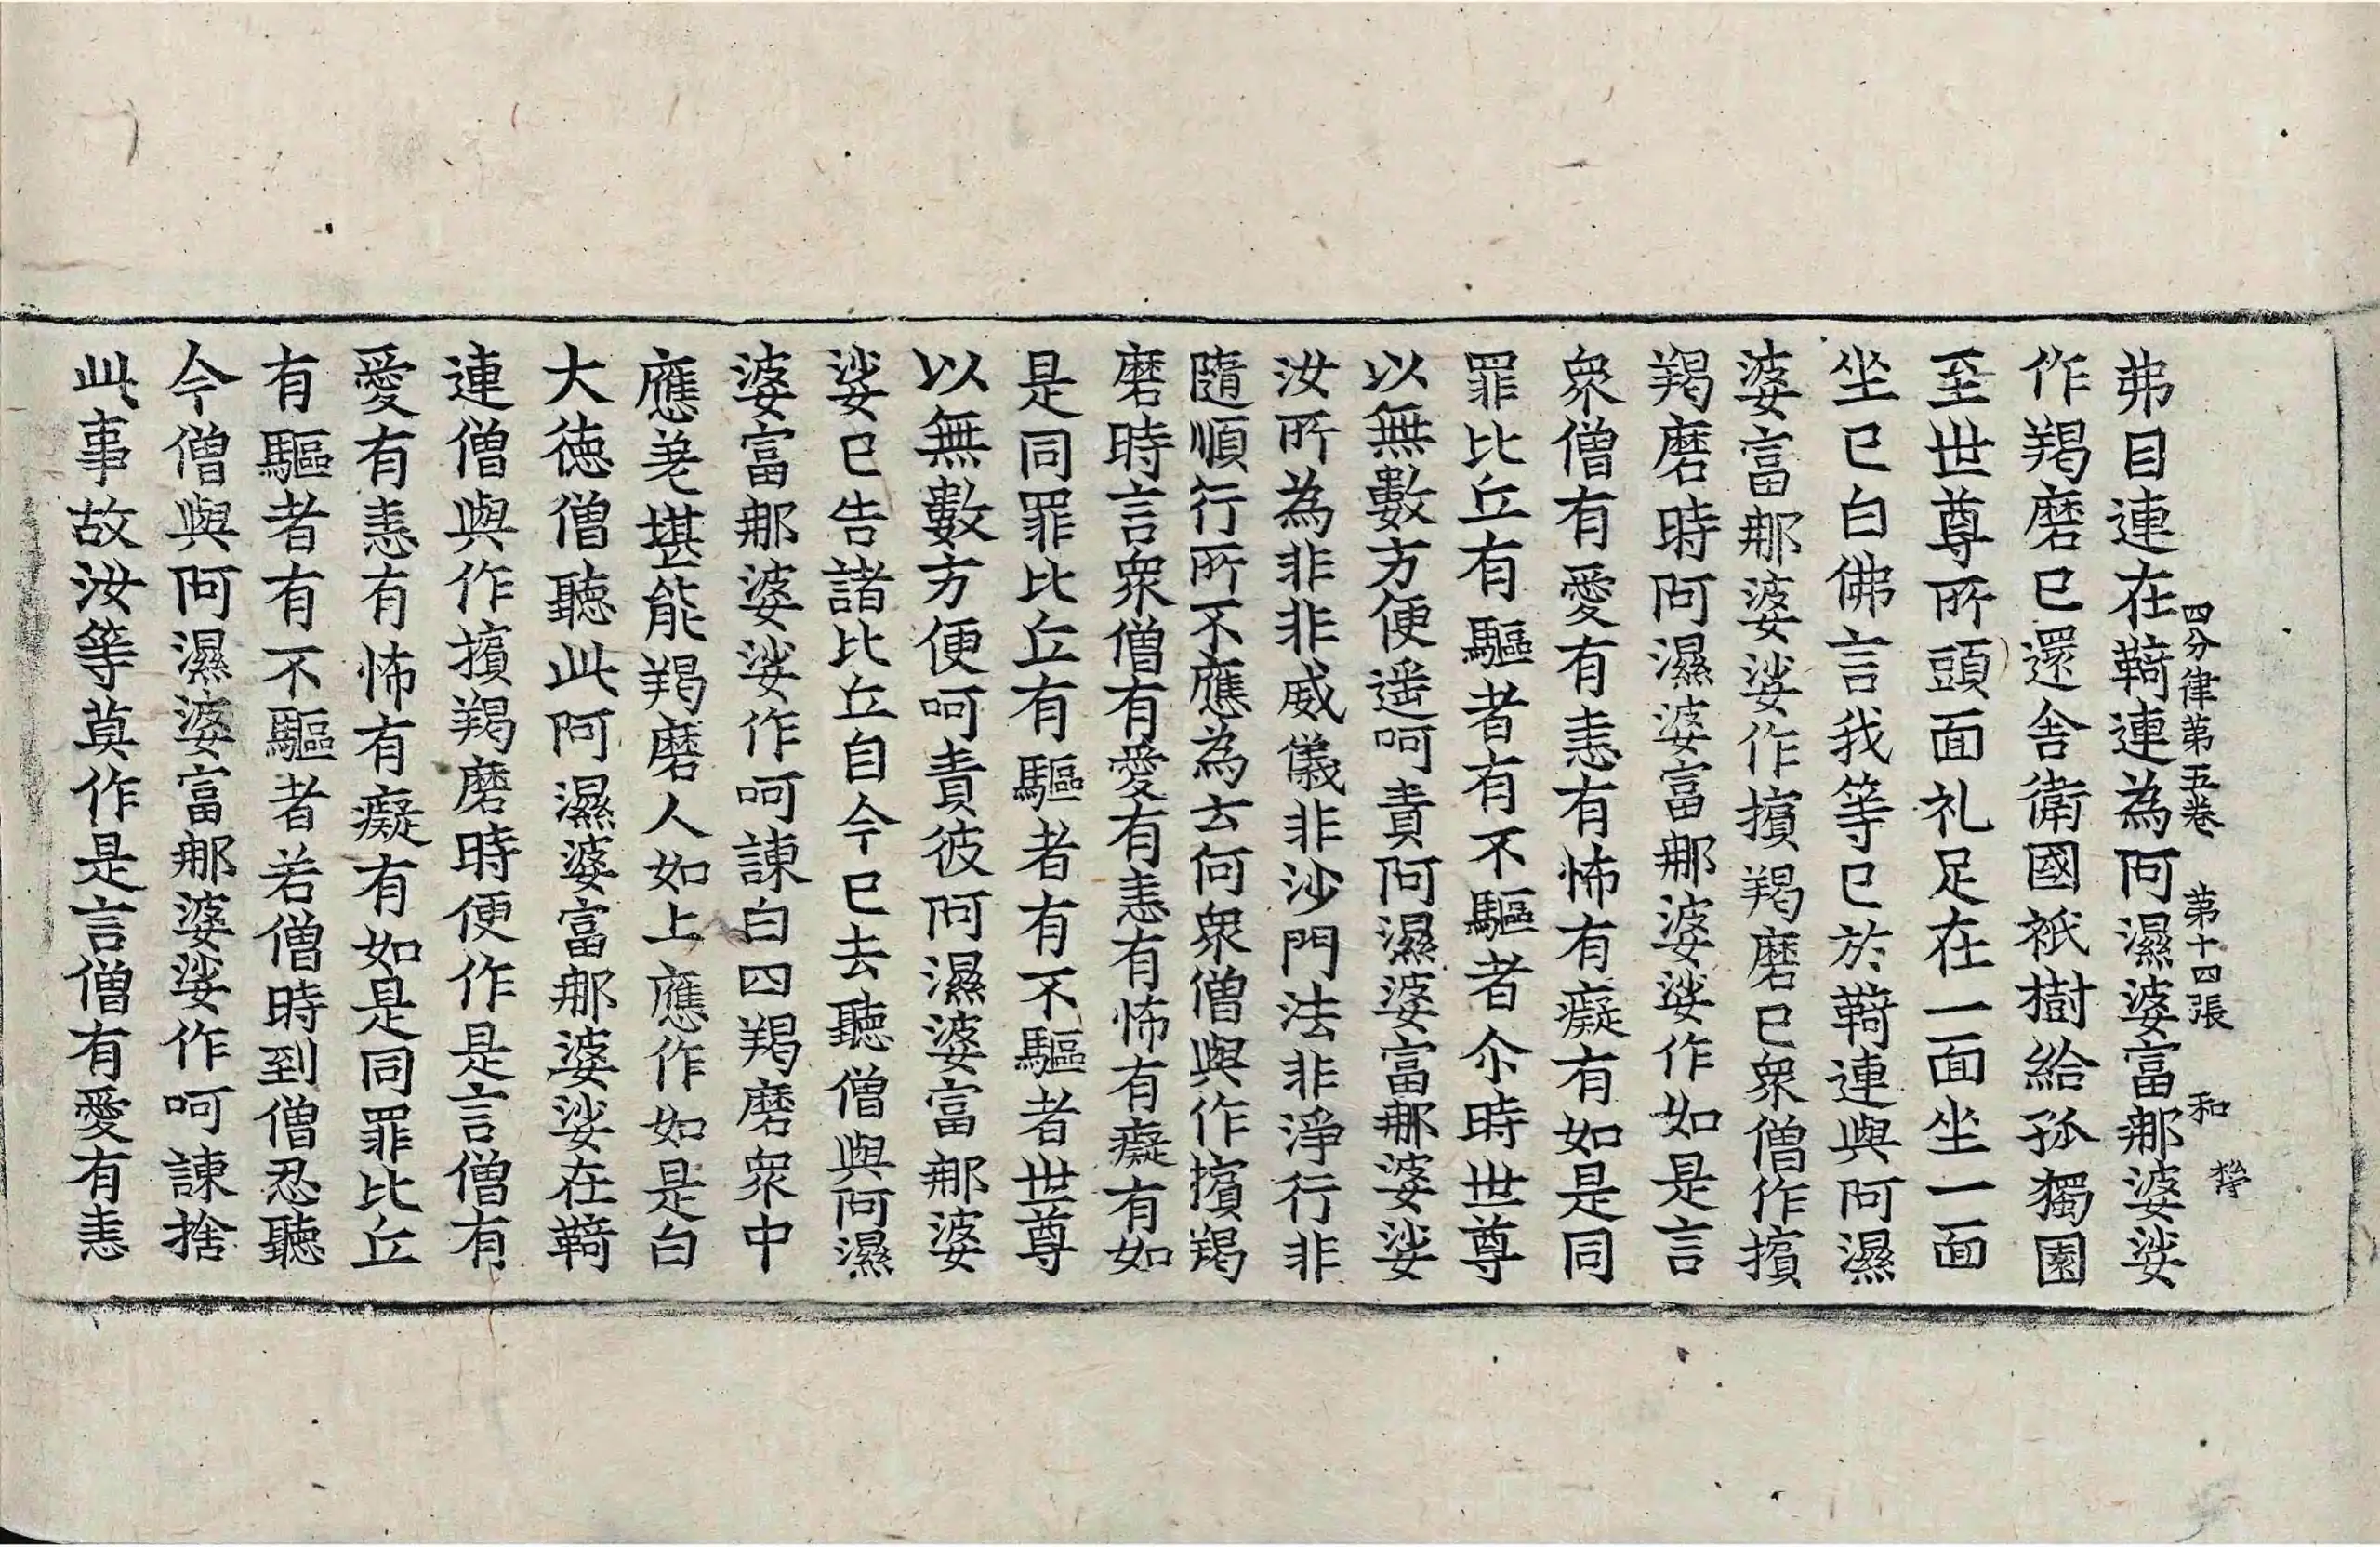 四分律第五卷　第十四張　和
弗目連在䩭連為阿濕婆富那婆娑
作羯磨已還舍衛國祇樹給孤獨園
至世尊所頭面礼足在一面坐一面
坐已白佛言我等已於䩭連與阿濕
婆富那婆娑作擯羯磨已衆僧作擯
羯磨時阿濕婆富那婆娑作如是言
衆僧有愛有恚有怖有癡有如是同
罪比丘有驅者有不驅者尒時世尊
以無數方便遥呵責阿濕婆富那婆娑
汝所為非非威儀非沙門法非淨行非
隨順行所不應為云何衆僧與作擯羯
磨時言衆僧有愛有恚有怖有癡有如
是同罪比丘有驅者有不驅者世尊
以無數方便呵責彼阿濕婆富那婆
娑已告諸比丘自今已去聽僧與阿濕
婆富那婆娑作呵諫白四羯磨衆中
應差堪能羯磨人如上應作如是白
大德僧聽此阿濕婆富那婆娑在䩭
連僧與作擯羯磨時便作是言僧有
愛有恚有怖有癡有如是同罪比丘
有驅者有不驅者若僧時到僧忍聽
今僧與阿濕婆富那婆娑作呵諫捨
此事故汝等莫作是言僧有愛有恚